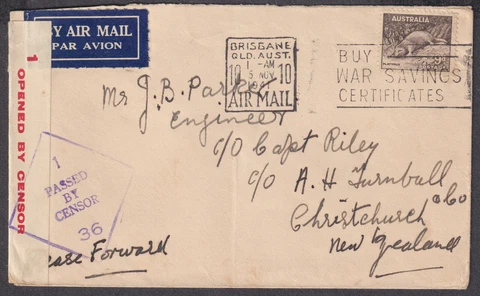 BY AIR MAIL
PAR AVION
1 OPENED BY CENSOR
BRISBANE
QLD. AUST.
1 - AM
10 5 NOV 10
AIR MAIL
AUSTRALIA
BUY
WAR SAVINGS
CERTIFICATES
Mr J. B. Parker
Engineer
c/o Capt Riley
c/o A. H. Turnbull & Co
Christchurch
New Zealand
1
PASSED
BY
CENSOR
36
ease Forward